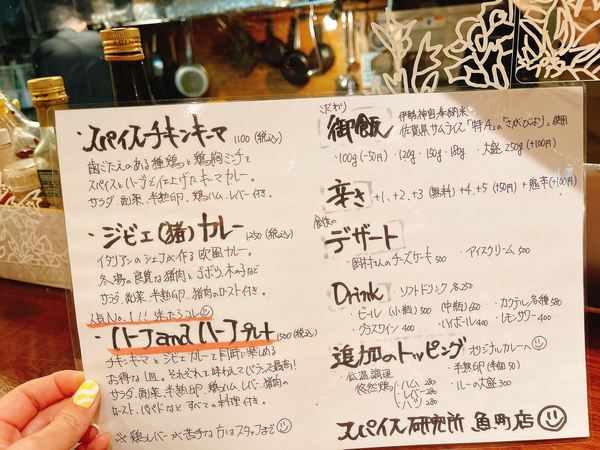 ・スパイスチキンキーマ 1100(税込)
歯ごたえのある種鶏と鶏胸ミンチと
スパイスとハーブで仕上げたキーマカレー。
サラダ、副菜、半熟卵、鶏ハム、レバー付き。
・ジビエ(猪)カレー 1250(税込)
イタリアンのシェフが作る欧風カレー。
冬場の良質な猪肉とごぼう、木の子など
サラダ、副菜、半熟卵、猪肉のロースト付き。
人気No.1!! 米たらコレ
・ハーフandハーフプレート 1500(税込)
チキンキーマとジビエカレーを同時に楽しめる
お得な1皿。それぞれで味わえてバランス最高!
サラダ、副菜、半熟卵、鶏ハム、レバー、猪肉の
ロースト、パパドなどすべての料理付き。
※鶏レバーが苦手な方はスタッフまで
こだわり
御飯 伊勢神宮奉納米
佐賀県サムライス「特A」の「さがびより」使用
・100g(-50円)・120g・150g・180g ・大盛 250g(+100円)
辛さ +1,+2,+3(無料)+4,+5(+50円)+鬼辛(+100円)
食後の
デザート
・岡村さんのチーズケーキ 500 ・アイスクリーム 500
Drink ・ソフトドリンク 各250
・ビール(小瓶)500 (中瓶)650 ・カクテル各種 500
・グラスワイン 400 ・ハイボール 400 ・レモンサワー 400
追加のトッピング オリジナルカレーへ
・低温調理 ・半熟卵(半個50)
悠然鶏 ・ハム 280 ・ルーの大盛 300
・レバー 280
・ハツ 280
スパイス研究所 魚町店